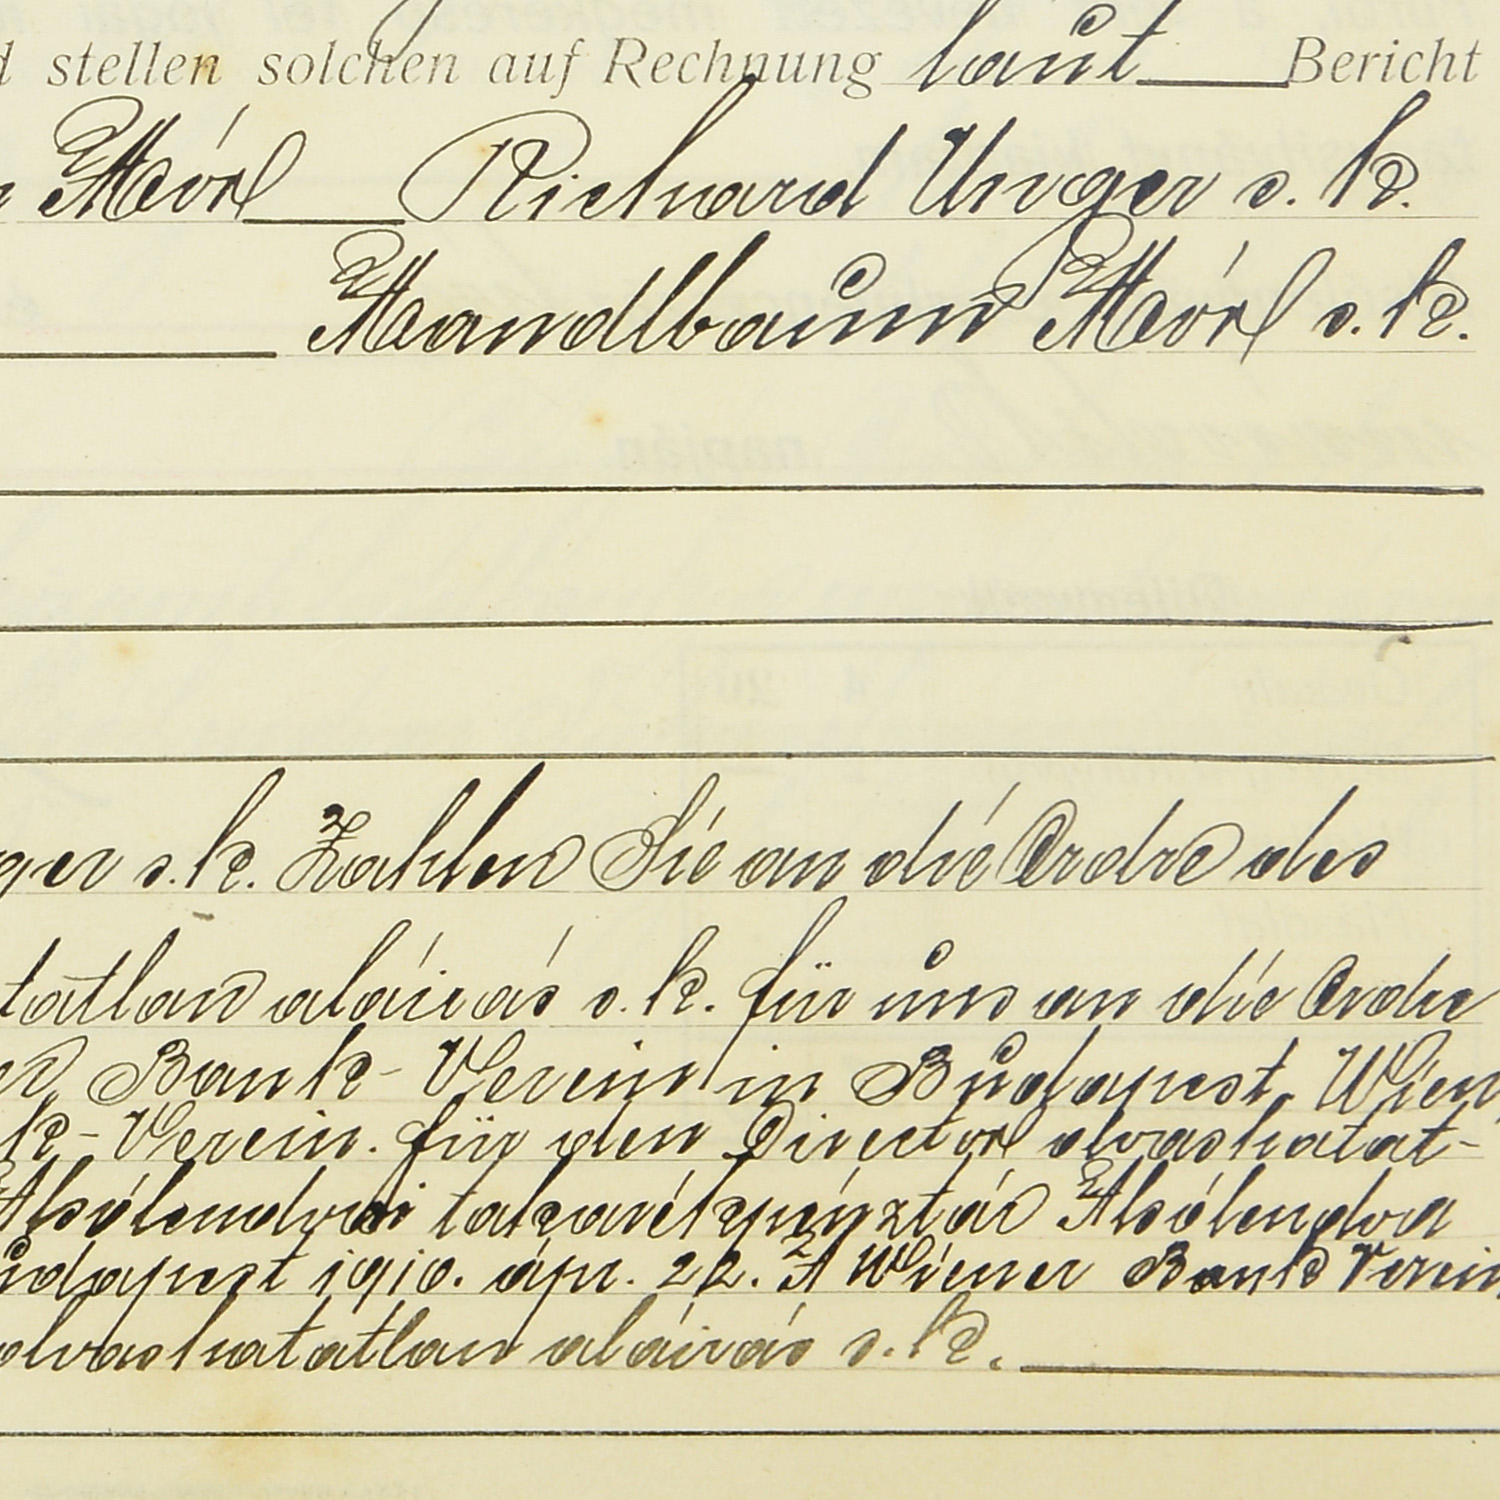 stellen solchen auf Rechnung laut Bericht
Mór Richard Unger s. k.
Mandlbaum Mór s. k.
ger s. k. Zahlen Sie an die Ordre des
tatlan aláirás s. k. für uns an die Ordre
Bank-Verein in Budapest, Wien
k-Verein. für den Director olvashatat-
Alsólendvai takarékpénztár Alsólendva
udapest 1910. ápr. 22. A Wiener Bank Verein
olvashatatlan aláirás s. k.